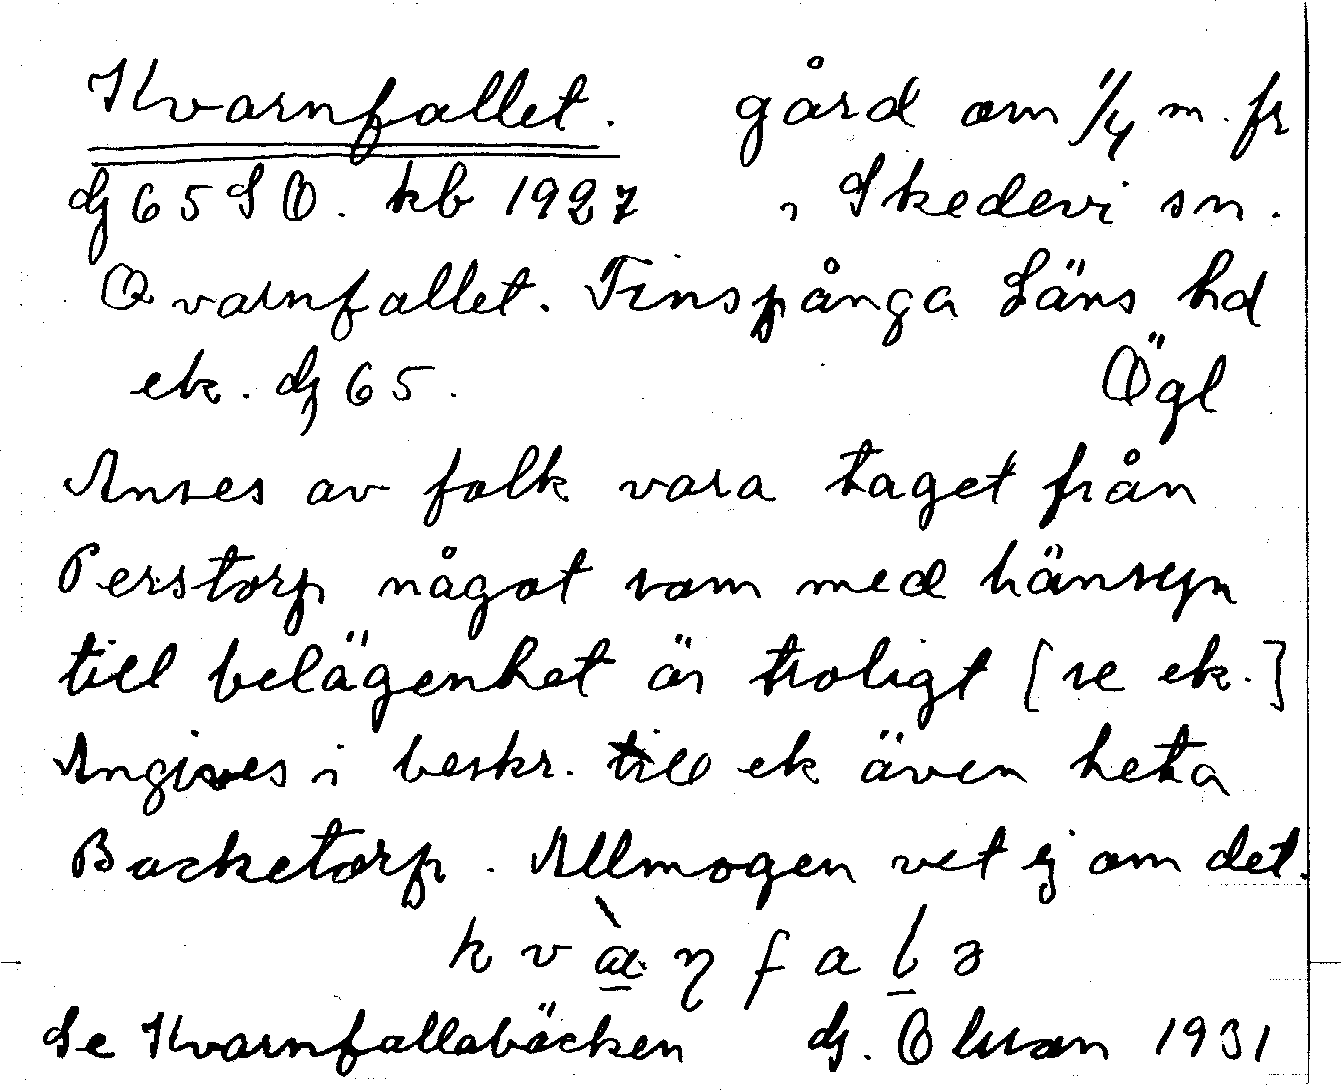 Kvarnfallet. gård om 1/4 m. fr
dj 65 SO. kb 1927 i Skedevi sn.
Qvarnfallet. Finspånga Läns hd
ek. dj 65. Ögl
Anses av folk vara taget från
Perstorp något som med hänsyn
till belägenhet är troligt [se ek.]
Angives i beskr. till ek även heta
Backetorp. Allmogen vet ej om det.
kvàɳfalə
Se Kvarnfallabäcken dj. Olsson 1931